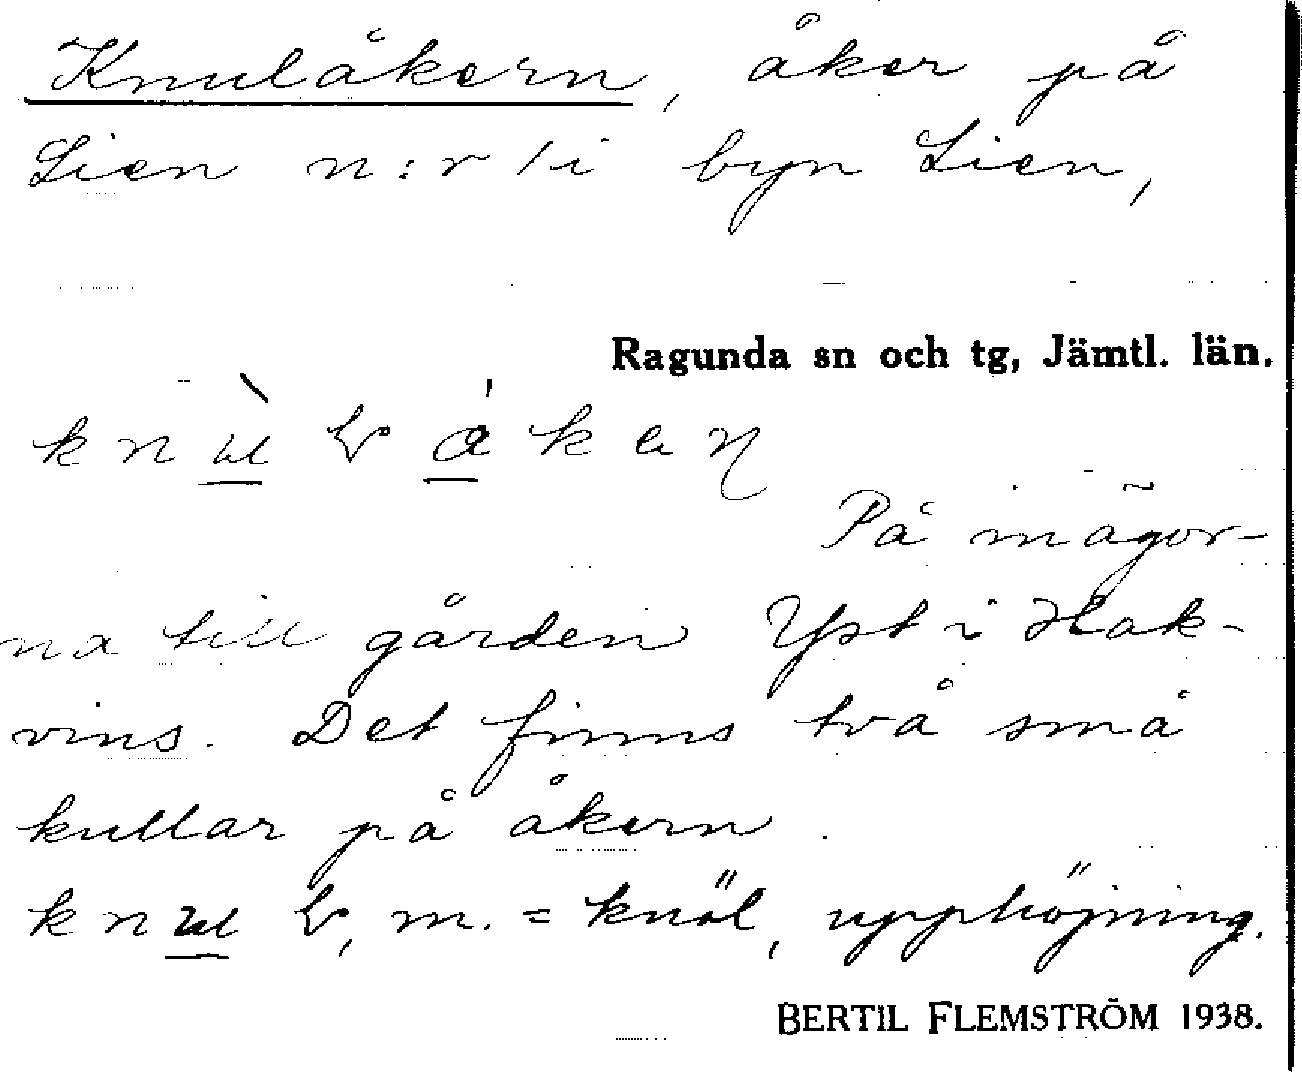 Knulåkern, åker på
Lien n:r 1 i byn Lien,
Ragunda sn och tg, Jämtl. län.
På mågor-
na till gården Ypst i Hak-
vins. Det finns två små
kullar på åkern.
m. = knöl, upphöjning.
BERTIL FLEMSTRÖM 1938.